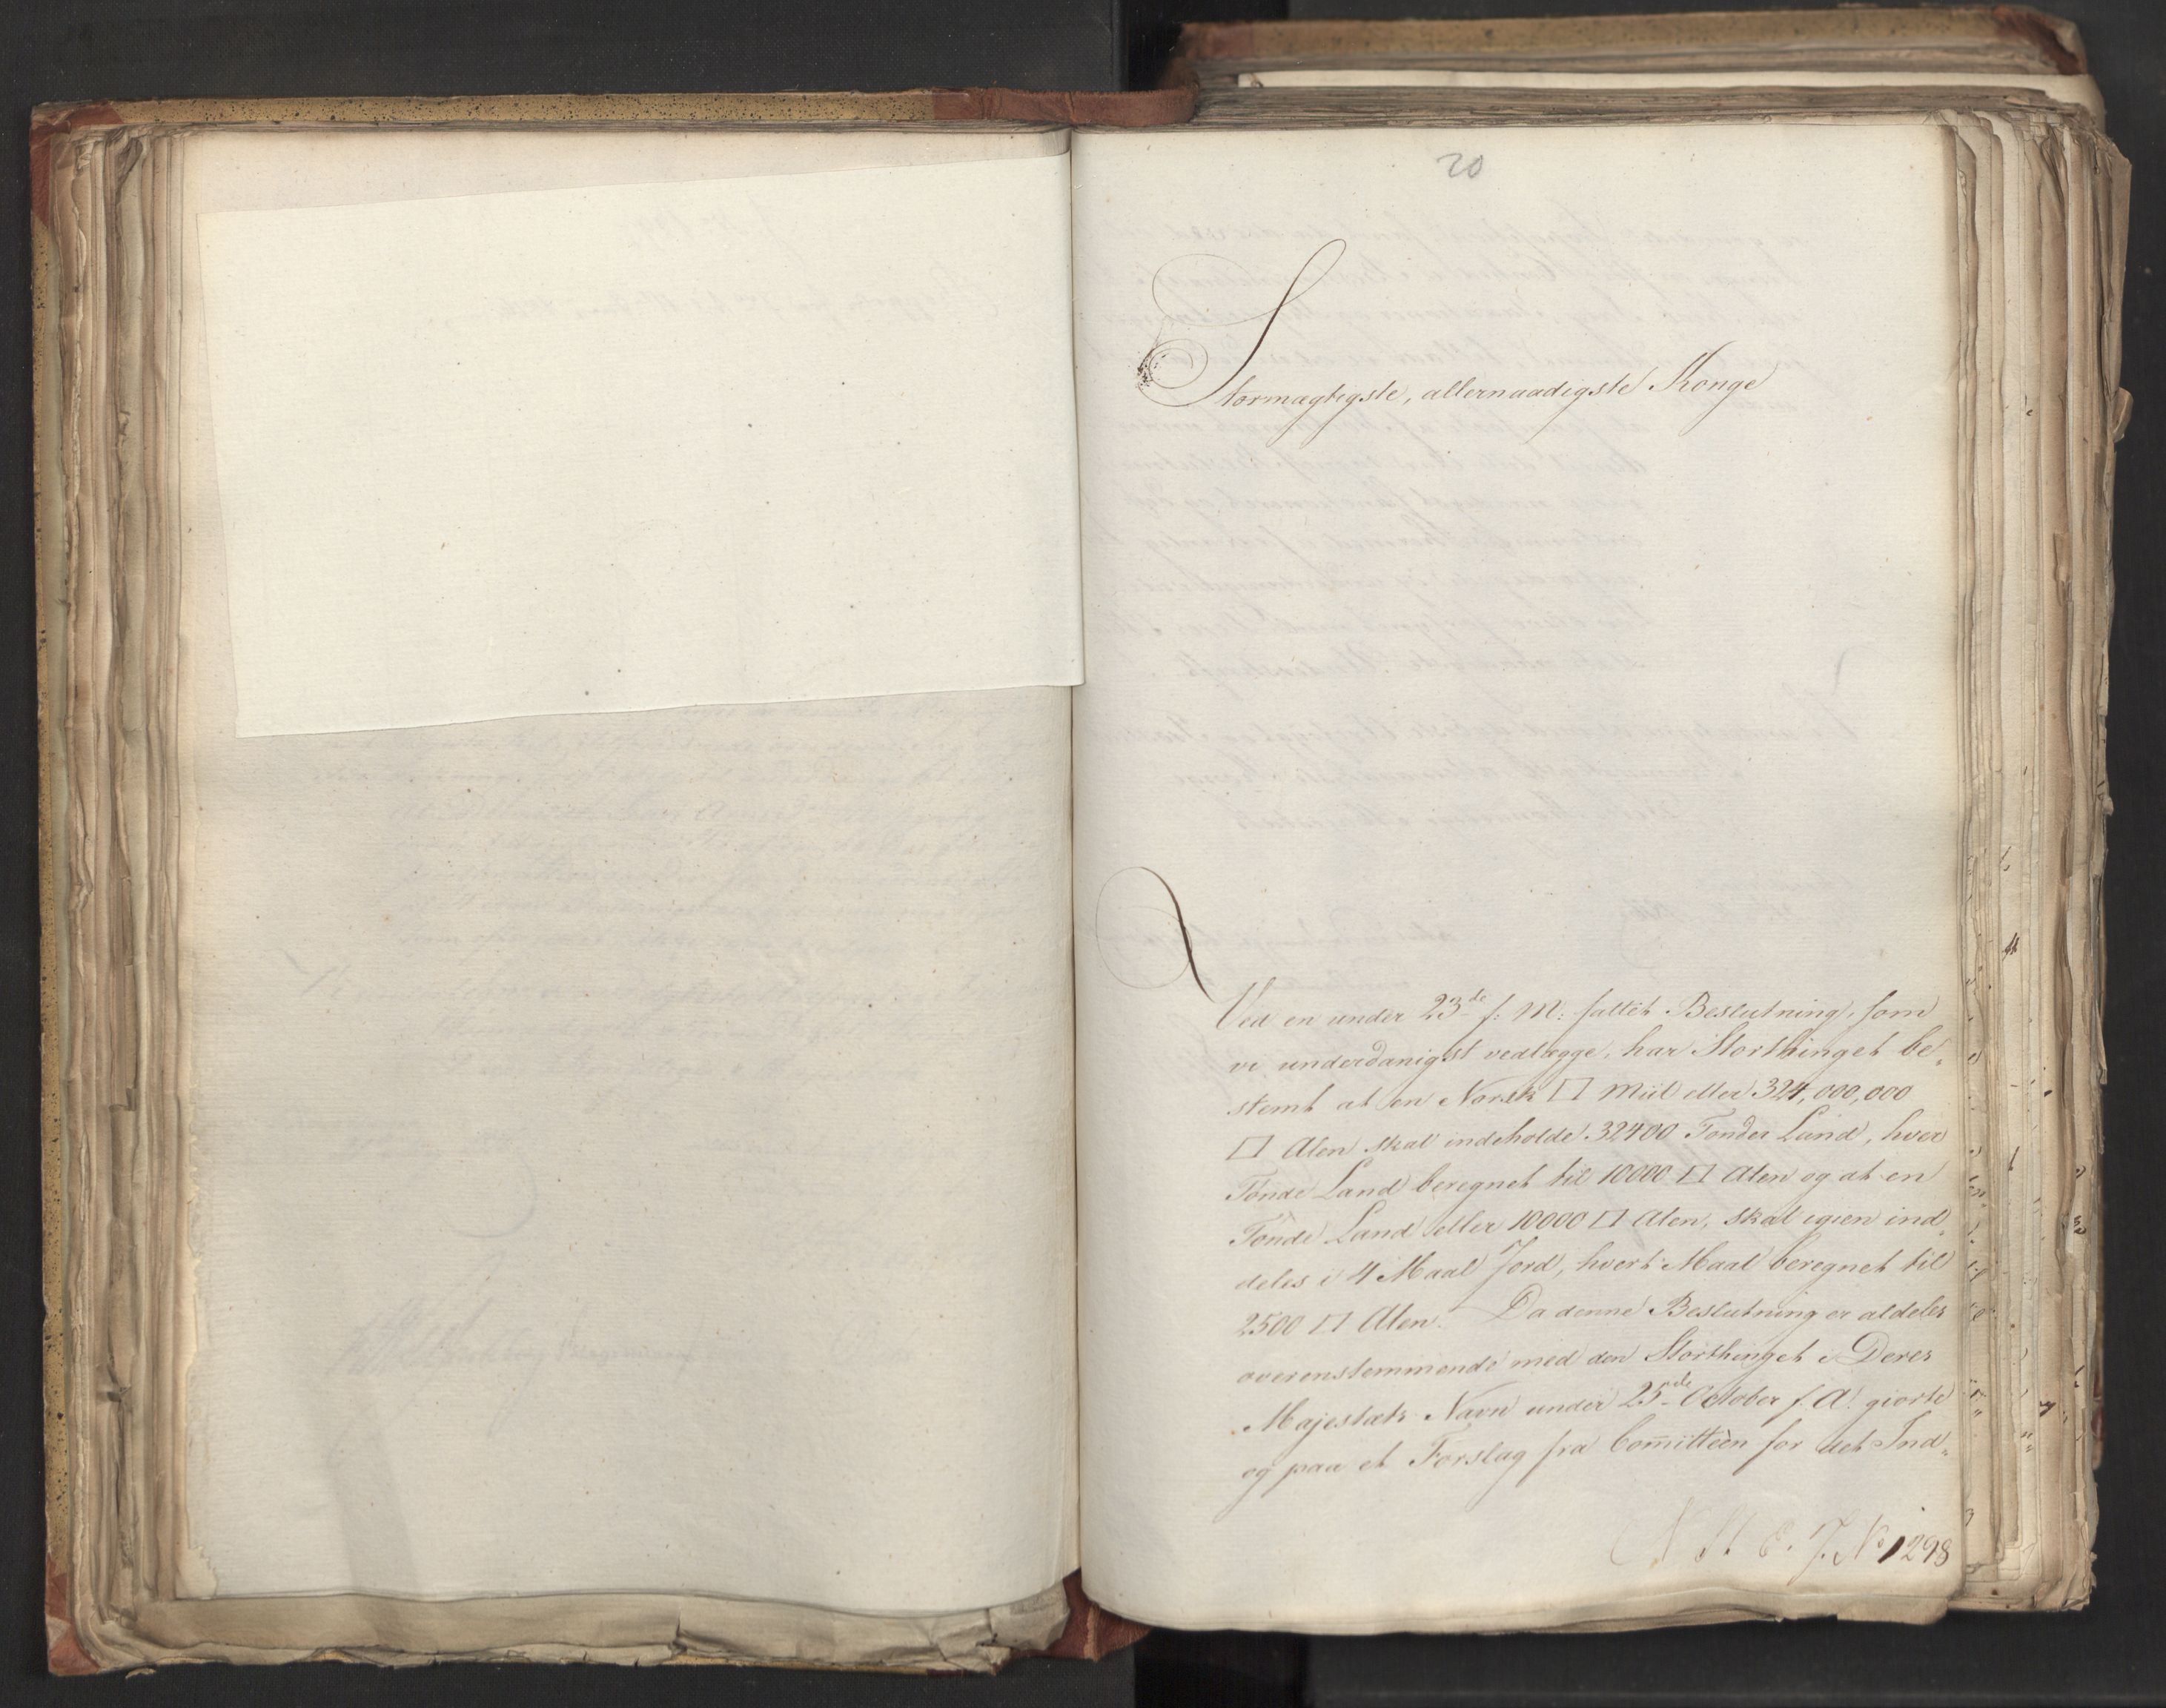 20
Stormægtigste, allernaadigste Konge
Ved en under 23de f: M: fattet Beslutning, som
vi underdanigst vedlægge, har Storthinget be„
stemt at en Norsk □ Miil eller 324,000,000
□ Alen skal indeholde 32400 Tønder Land, hver
Tønde Land beregnet til 10000 □ Alen og at en
Tønde Land eller 10000 □ Alen, skal igien ind„
deles i 4 Maal Jord, hvert Maal beregnet til
2500 □ Alen. Da denne Beslutning er aldeles
overensstemmende med den Storthinget i Deres
Majestæts Navn under 25de October f. A. giorte
og paa et Forslag fra Com̅itteèn for det Ind„
N. St. E. J. No 1298